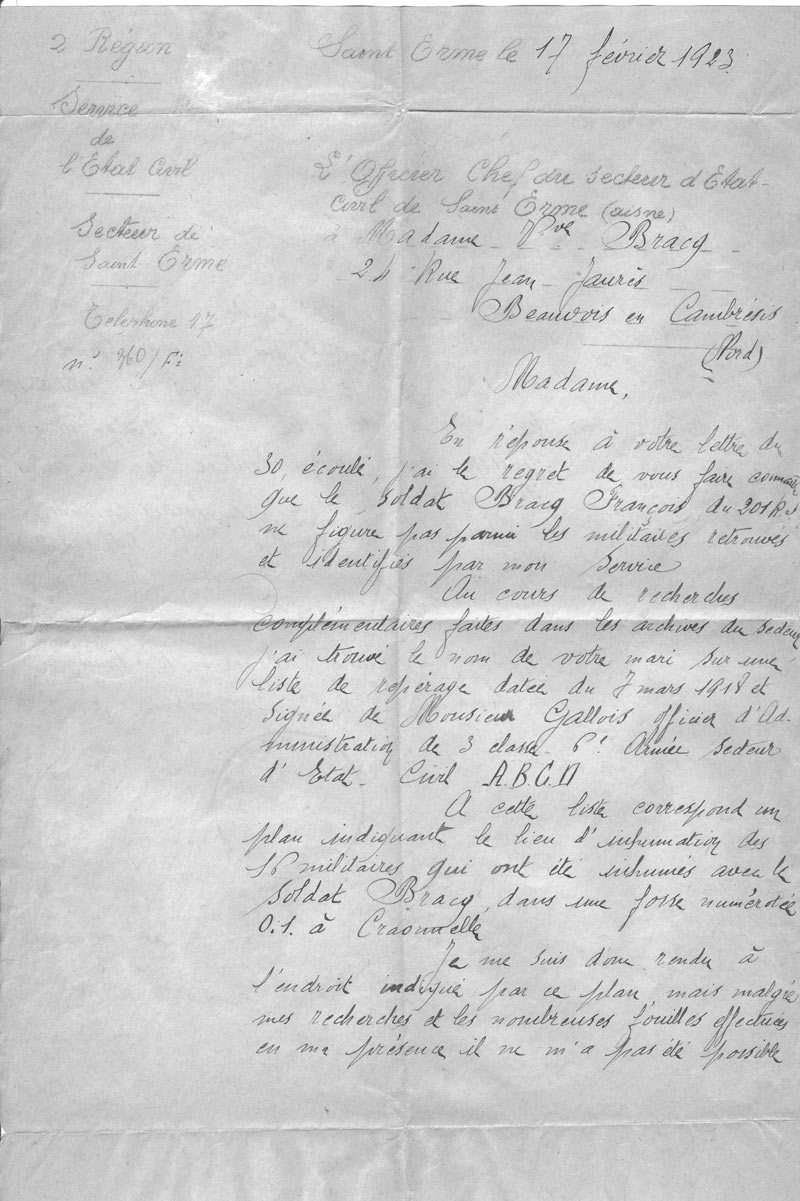 2 Région
Saint Erme le 17 février 1923
Service
de
l'Etat Civil
Secteur de
Saint Erme
Telephone 17
n° 360/Fi
L'Officier Chef du secteur d'Etat-
Civil de Saint Erme (aisne)
à Madame Vve Bracq
24 Rue Jean-Jaurès
Beauvois en Cambrésis
(Nord)
Madame,
En réponse à votre lettre du
30 écoulé, j'ai le regret de vous faire connaître
que le soldat Bracq François du 201 R.I
ne figure pas parmi les militaires retrouvés
et identifiés par mon Service
Au cours de recherches
complémentaires faites dans les archives du secteur
j'ai trouvé le nom de votre mari sur une
liste de repérage datée du 7 mars 1918 et
signée de Monsieur Gallois officier d'Ad-
ministration de 3 classe 6e Armée secteur
d'Etat-Civil A.B.C.D
A cette liste correspond un
plan indiquant le lieu d'inhumation des
16 militaires qui ont été inhumés avec le
soldat Bracq dans une fosse numérotée
0.1. à Craonnelle
Je me suis donc rendu à
l'endroit indiqué par ce plan mais malgré
mes recherches et les nombreuses fouilles effectuées
en ma présence il ne m'a pas été possible